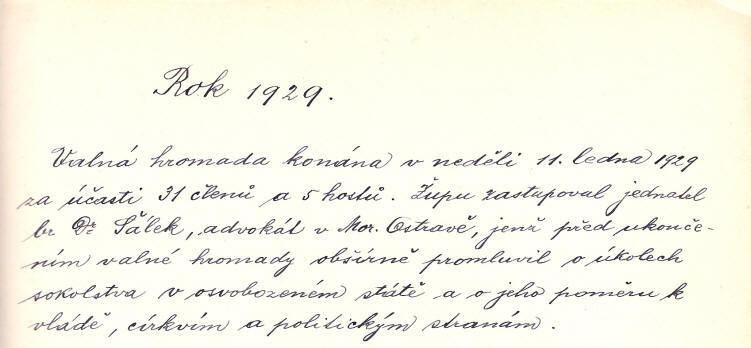 Rok 1929.
Valná hromada konána v neděli 11. ledna 1929
za účasti 31 členů a 5 hostů. Župu zastupoval jednatel
br Dr Šálek, advokát v Mor. Ostravě, jenž před ukonče-
ním valné hromady obšírně promluvil o úkolech
sokolstva v osvobozeném státě a o jeho poměru k
vládě, církvím a politickým stranám.